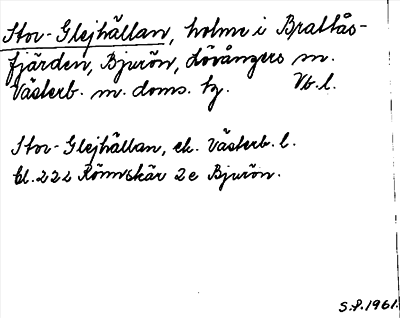 Stor-Glejhällan, holme i Brattås-
fjärden, Bjurön, Lövångers sn.
Västerb. m. doms. tg. Vb. l.
Stor-Glejhällan, ek. Västerb. l.
bl. 222 Rönnskär 2e Bjurön.
S.P. 1961.